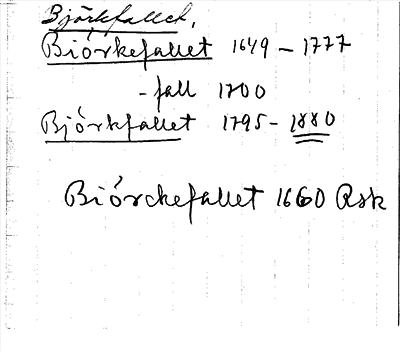 Björkfallet,
Biörkefallet 1649 - 1777
-fall 1700
Björkfallet 1795 - 1880
Biörckefallet 1660 Rsk